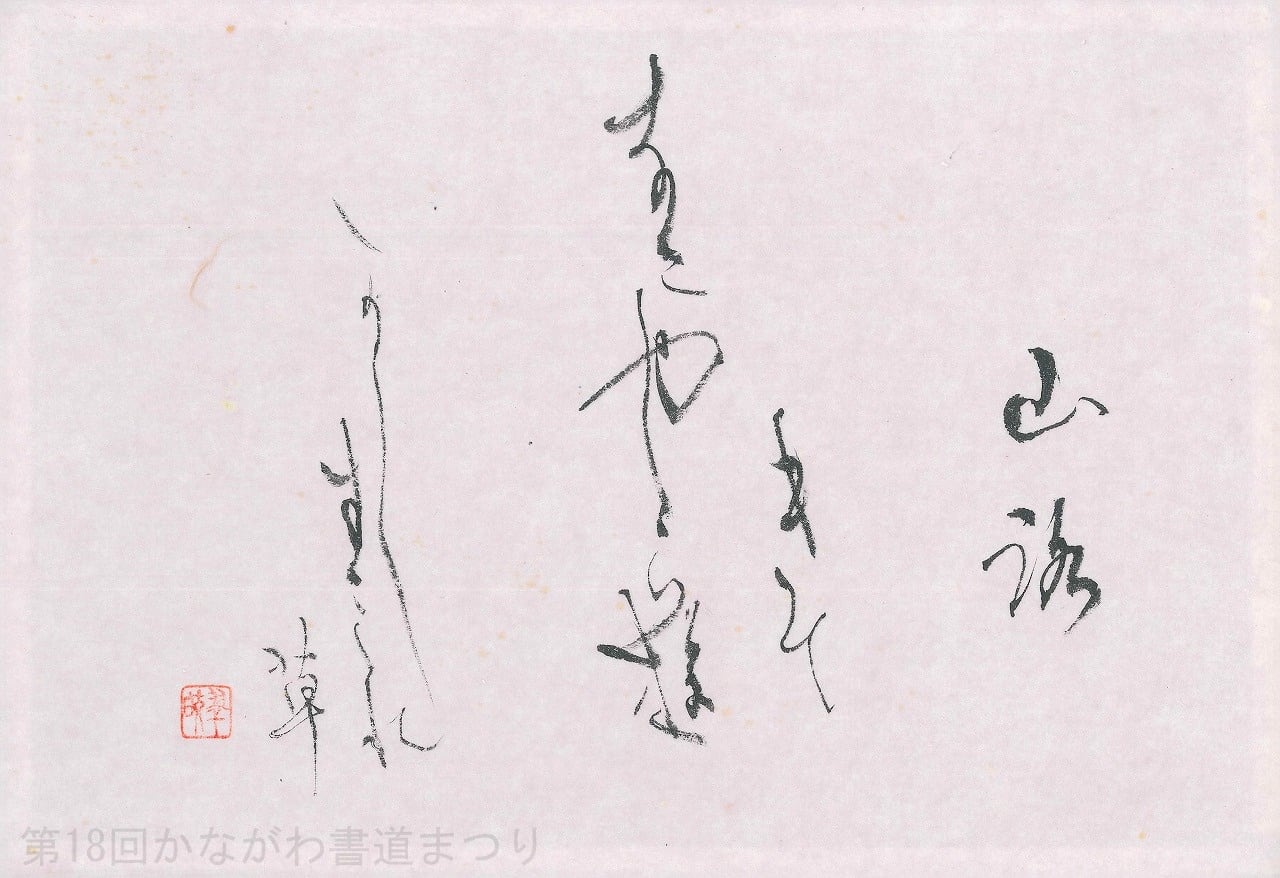 山路
来て
なにやら遊
かし
すみれ
草
第18回かながわ書道まつり